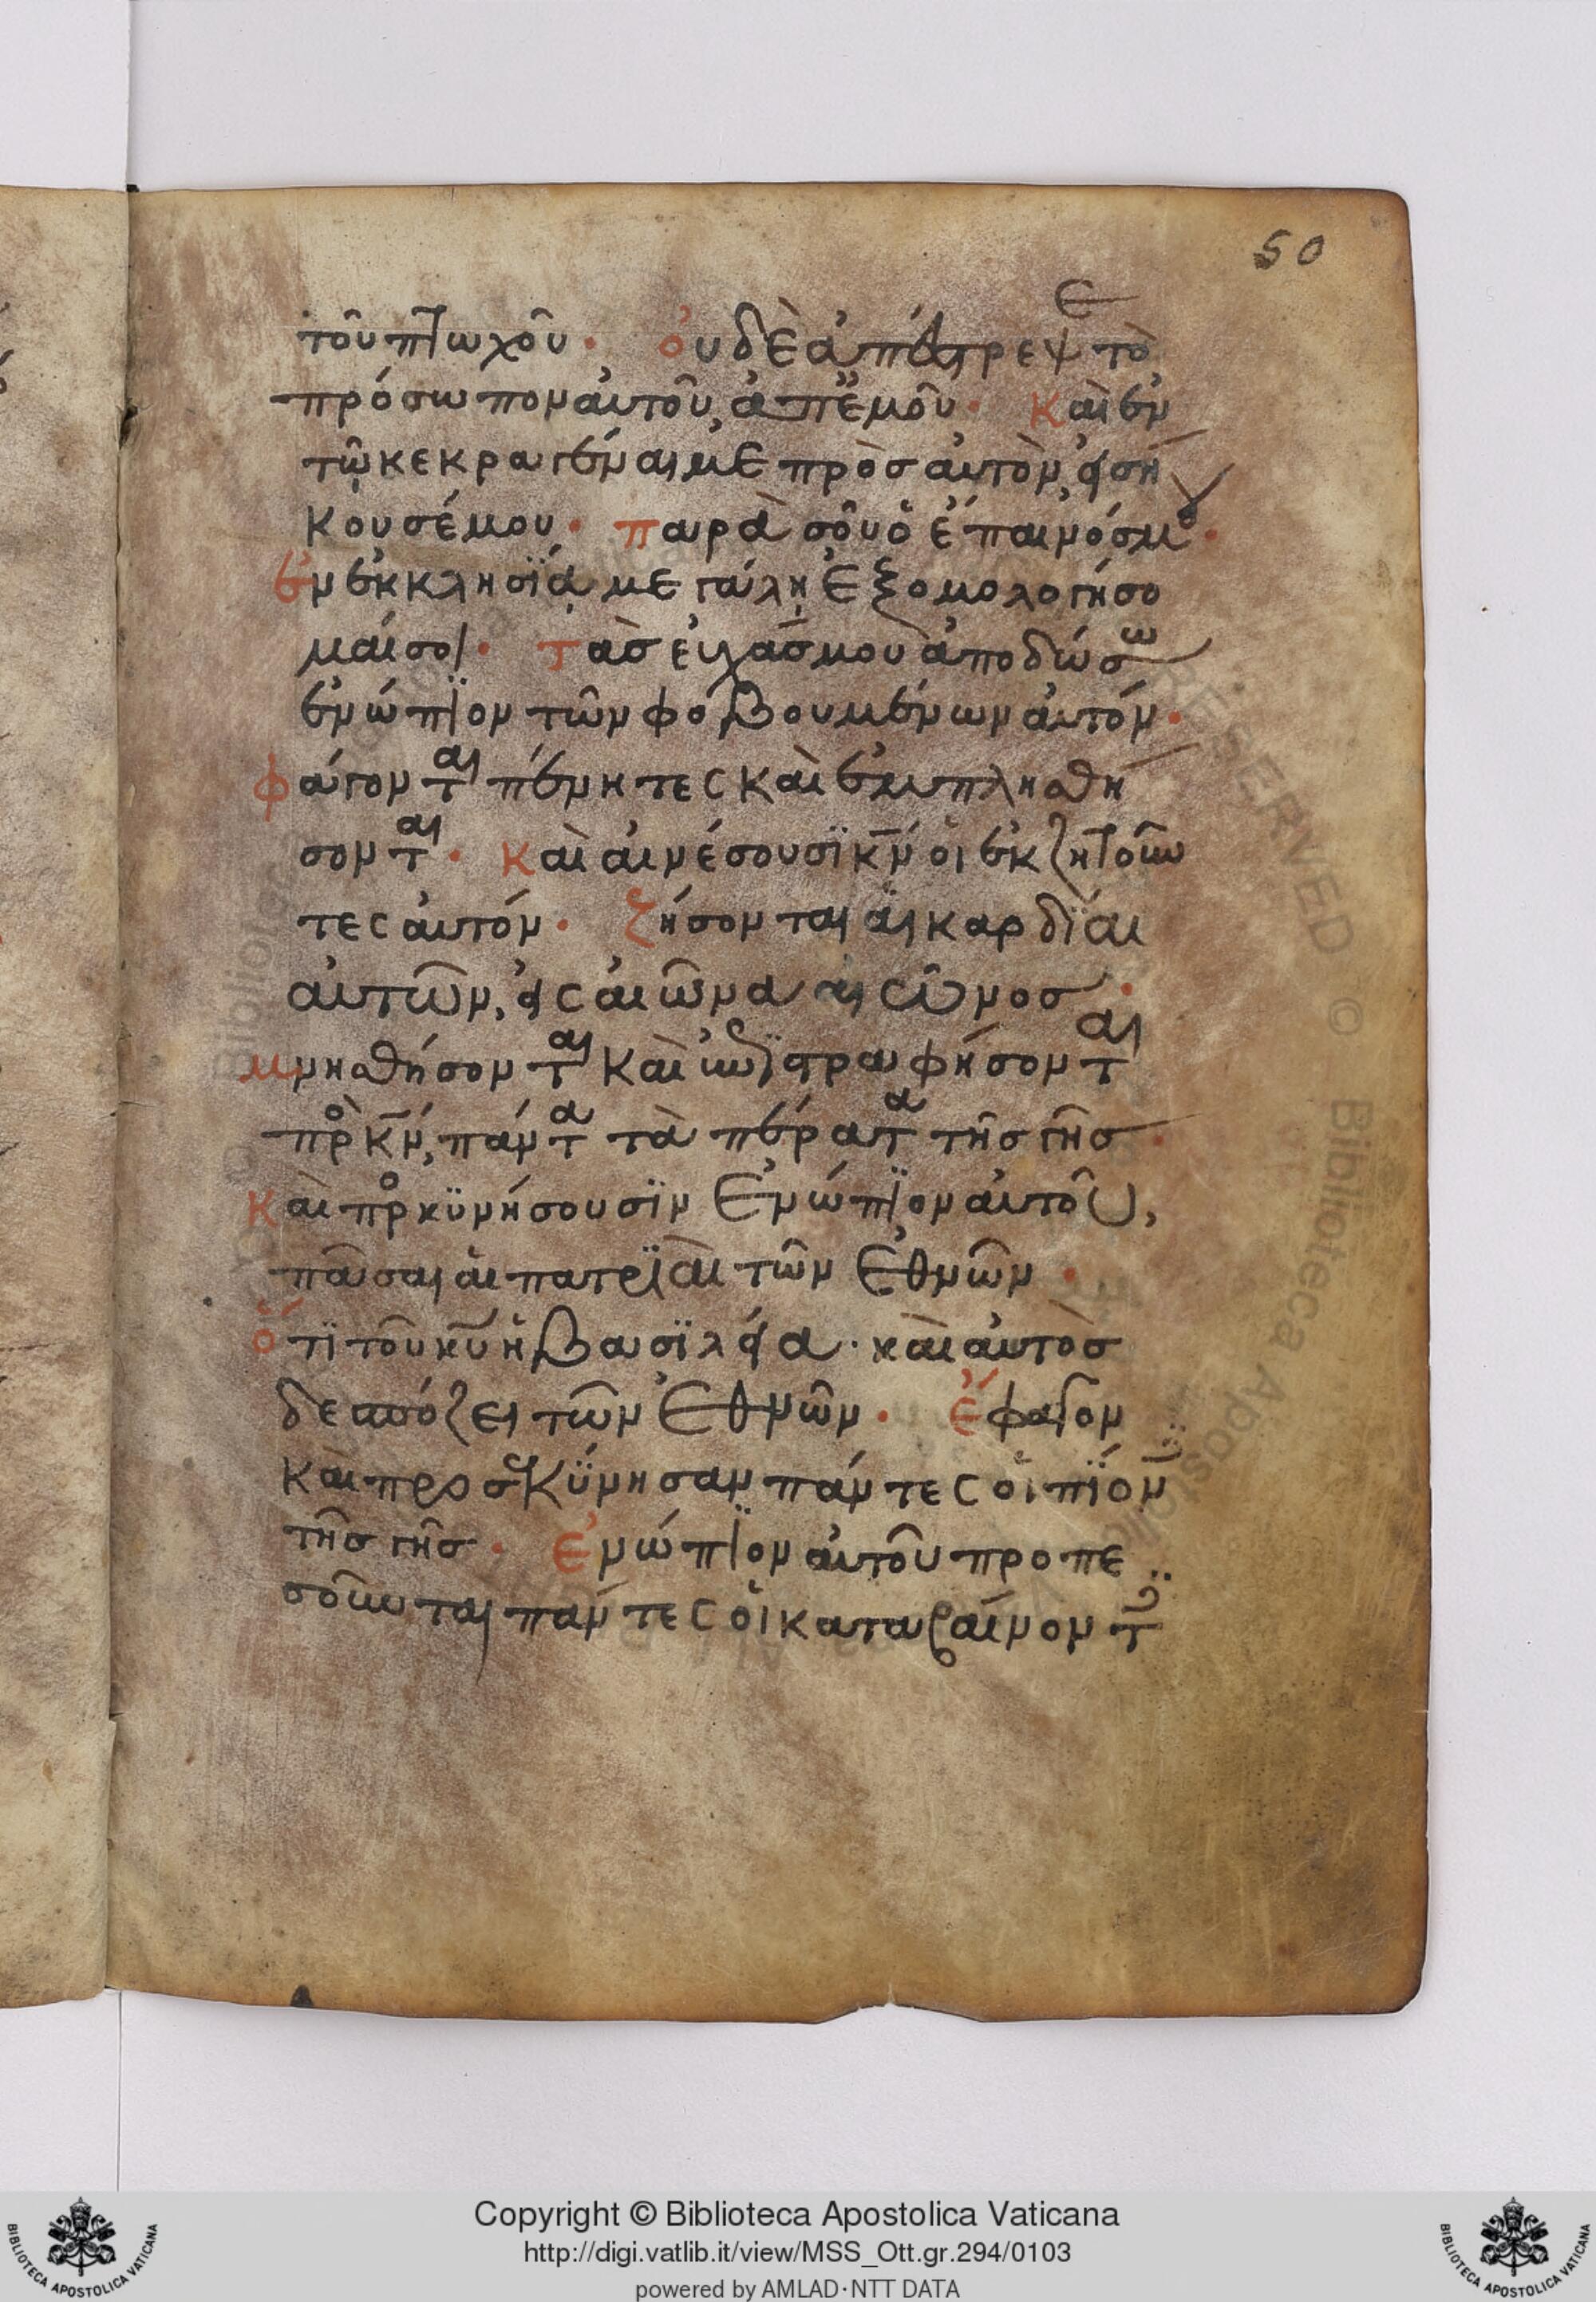 50
τοῦ πτωχοῦ· οὐδὲ ἀπέστρεψε τὸ
πρόσωπον αὐτοῦ, ἀπ ἐμοῦ· Καὶ ἐν
τῷ κεκραγέναι με πρὸσ αὐτὸν, εἰσή
κουσέ μου· παρὰ σοῦ ὁ ἔπαινόσ μου·
ἐν ἐκκλησΐᾳ μεγάλῃ ἐξομολογήσο
μαί σοι· τὰσ εὐχάσ μου ἀποδώσω
ἐνώπϊον τῶν φοβουμένων αὐτόν·
φάγονται πένητες καὶ ἐμπλησθή
σονται· καὶ αἰνέσουσϊ κ̅ν̅ οἱ ἐκζητοῦν
τες αὐτόν· ζήσονται αἱ καρδΐαι
αὐτῶν, εἰς αἰῶνα αἰῶνοσ·
μνησθήσονται καὶ ἐπϊστραφήσονται
πρὸ κ̅ν̅, πάντα τὰ πέρατα τῆσ γῆσ·
καὶ προκϋνήσουσϊν ἐνώπϊον αὐτοῦ,
πᾶσαι αἱ πατρϊαὶ τῶν ἐθνῶν·
ὅτϊ τοῦ κ̅υ̅ ἡ βασϊλεία· καὶ αὐτὸσ
δεσπόζει τῶν ἐθνῶν· ἔφαγον
καὶ προσεκΰνησαν πάντες οἱ πΐονες
τῆσ γῆσ· ἐνώπϊον αὐτοῦ προπε
σοῦνται πάντες οἱ καταβαίνοντες
Copyright © Biblioteca Apostolica Vaticana
http://digi.vatlib.it/view/MSS_Ott.gr.294/0103
powered by AMLAD·NTT DATA
BIBLIOTECA APOSTOLICA VATICANA
BIBLIOTECA APOSTOLICA VATICANA